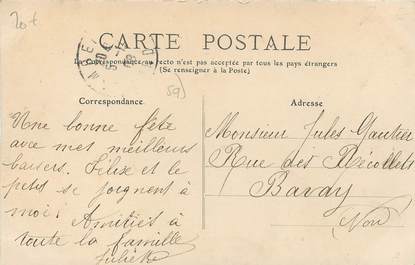 20t
CARTE POSTALE
La Correspondance au recto n'est pas acceptée par tous les pays étrangers
(Se renseigner à la Poste)
59
Correspondance
Adresse
Une bonne fête
avec mes meilleurs
baisers. Félix et le
petit se joignent à
moi. Amitiés à
toute la famille
Juliette
Monsieur Jules Gautier
Rue des Récollets
Bavay
Nord